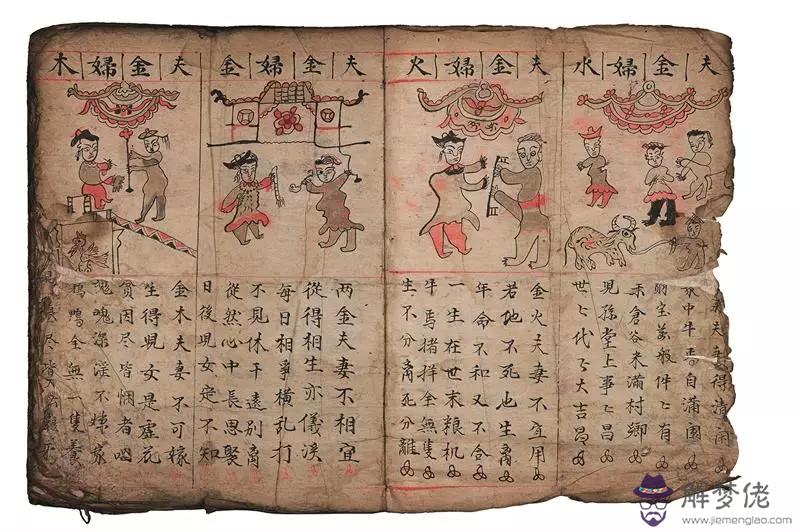 夫金婦水
夫妻得清閑
家中牛馬自滿園
財宝萬般件〻有
禾倉谷米滿村鄉
児孫堂上事〻昌
世〻代〻大吉昌
夫金婦火
金火夫妻不宜用
若地不死也生离
年命不和又不合
一生在世末粮机
牛馬猪拝全無隻
生不分离死分離
夫金婦金
两金夫妻不相宜
從得相生亦儀溪
每日相爭橫乱打
不見休干遠别离
從然心中長思娶
日後児女定不知
夫金婦木
金木夫妻不可嫁
生得児女是虚花
貧因尽皆烟者凶
不嫌家
鴨全無一隻養
解梦佬
www.jiemenglao.com